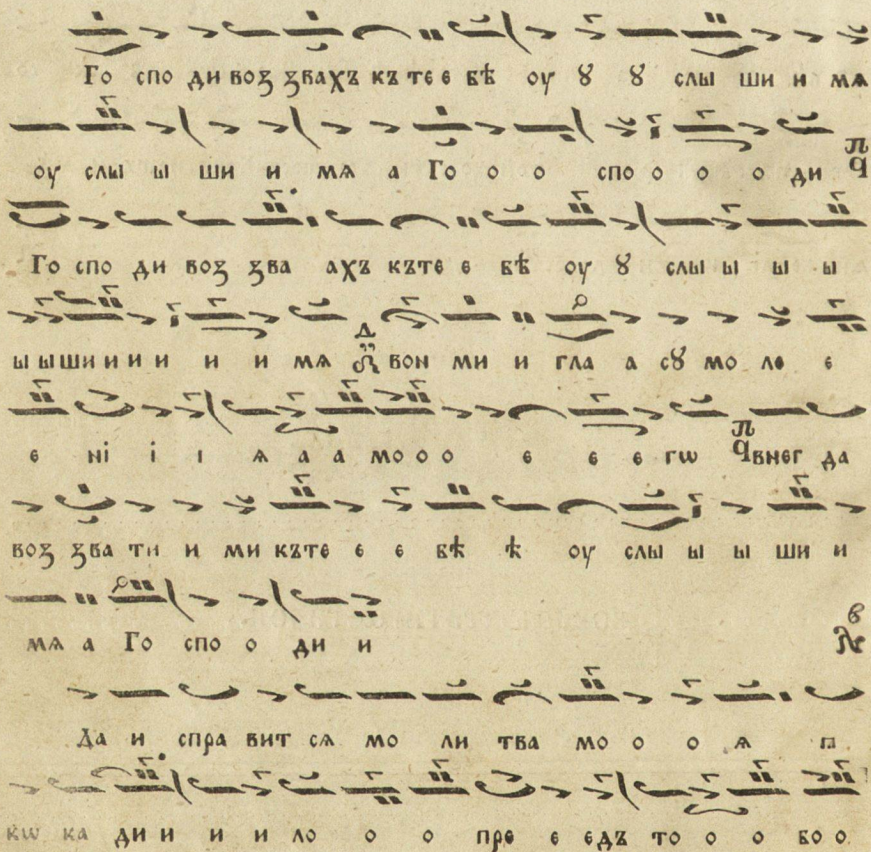 Го спо ди воз звахъ къ те е бѣ оу ꙋ ꙋ слы ши и мѧ
оу слы ы ши и мѧ а Го о о спо о о о ди
Го спо ди воз зва ахъ къте е бѣ оу ꙋ слы ы ы ы
ы ы ши и и и и и мѧ вон ми и гла а сꙋ мо ле е
е ні і і ѧ а а мо о о е е е гѡ внег да
воз зва ти и ми къте е е бѣ ѣ оу слы ы ы ши и
мѧ а Го спо о ди и
Да и спра вит сѧ мо ли тва мо о о ѧ
кѡ ка ди и и и ло о о пре е едъ то о о бо о